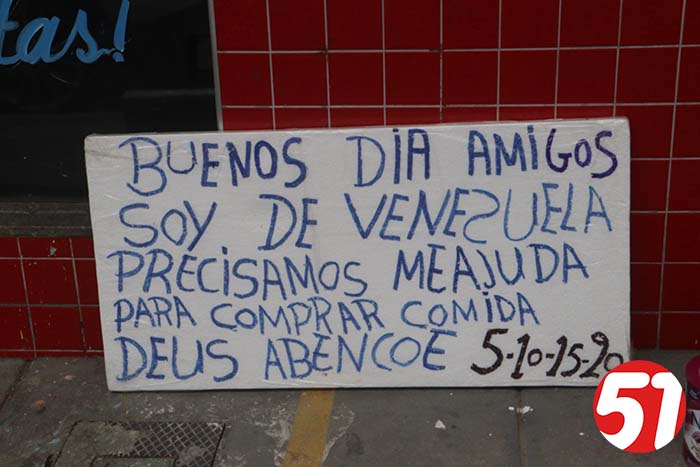 tas!
BUENOS DIA AMIGOS
SOY DE VENEZUELA
PRECISAMOS MEAJUDA
PARA COMPRAR COMIDA
DEUS ABENCOE 5-10-15-20
51